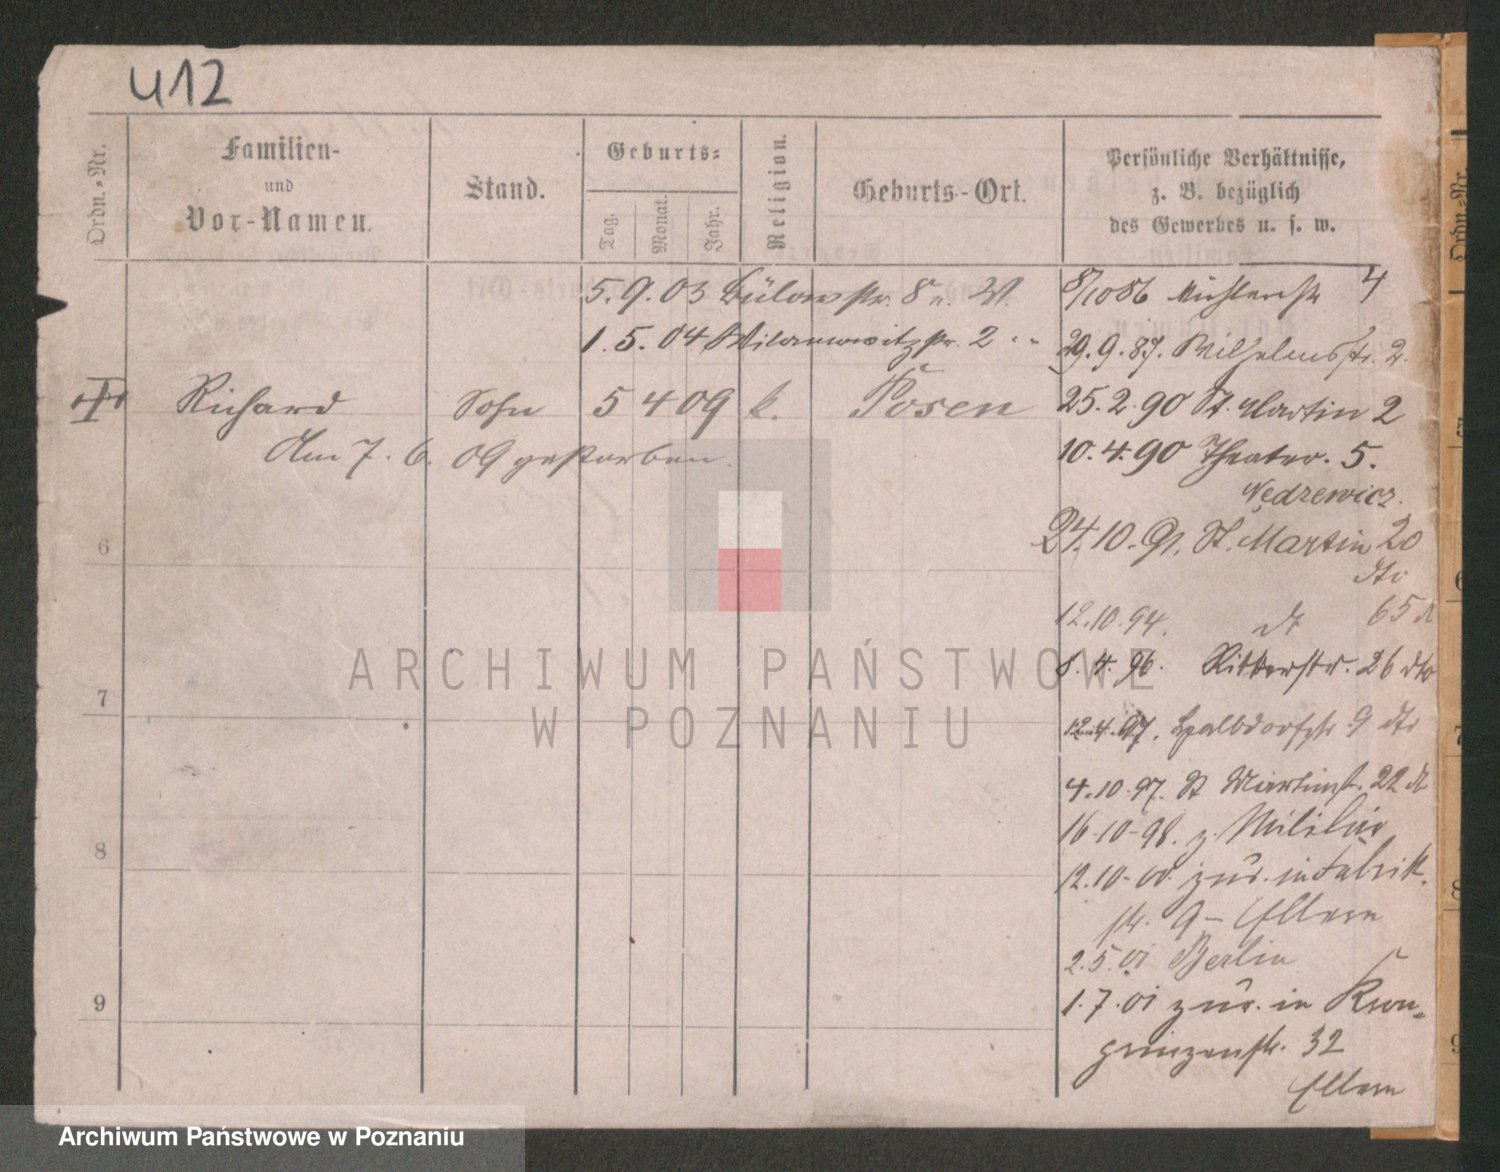 412
Ordn.-Nr.
Familien-
und
Vor-Namen.
Stand.
Geburts-
Tag.
Monat.
Jahr.
Religion.
Geburts-Ort.
Persönliche Verhältnisse,
z. B. bezüglich
des Gewerbes u. s. w.
Ordn.-Nr.
5. 9. 03 Bülowstr. 8
1. 5. 04 2
8/10 86 4
29. 9. 87. Wilhelmsstr. 2.
Richard Sohn 5 4 09 k. Posen
25. 2. 90 St. Martin 2
Am 7. 6. 09 gestorben.
10. 4. 90 Theater. 5.
Nędzewicz.
24. 10. 91. St. Martin 20
dto
12. 10. 94. dt 65 dt
8. 4. 96. Ritterstr. 26 dto
12. 4. 97. Halbdorfstr 9 dto
4. 10. 97. St Martinst. 22 dt
16-10-98. z. Militär
12. 10-00. zur. in Fabrik-
str. 9 - Eltern
2. 5. 01 Berlin
1. 7. 01 zur. in Kron-
prinzenstr. 32
Eltern
6
7
8
9
5
6
7
8
9
ARCHIWUM PAŃSTWOWE
W POZNANIU
Archiwum Państwowe w Poznaniu